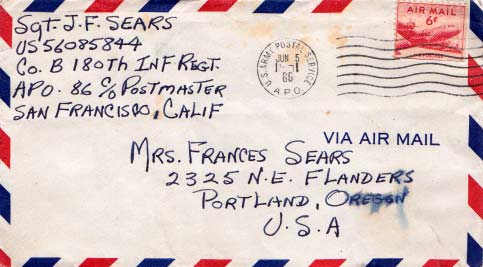 Sgt. J. F. SEARS
US56085844
Co. B 180th INF REGT.
APO. 86 c/o POSTMASTER
SAN FRANCISCO, CALIF
U.S. ARMY POSTAL SERVICE
JUN 5
86
A.P.O.
AIR MAIL
6¢
VIA AIR MAIL
MRS. FRANCES SEARS
2325 N.E. FLANDERS
PORTLAND, OREGON
U.S.A